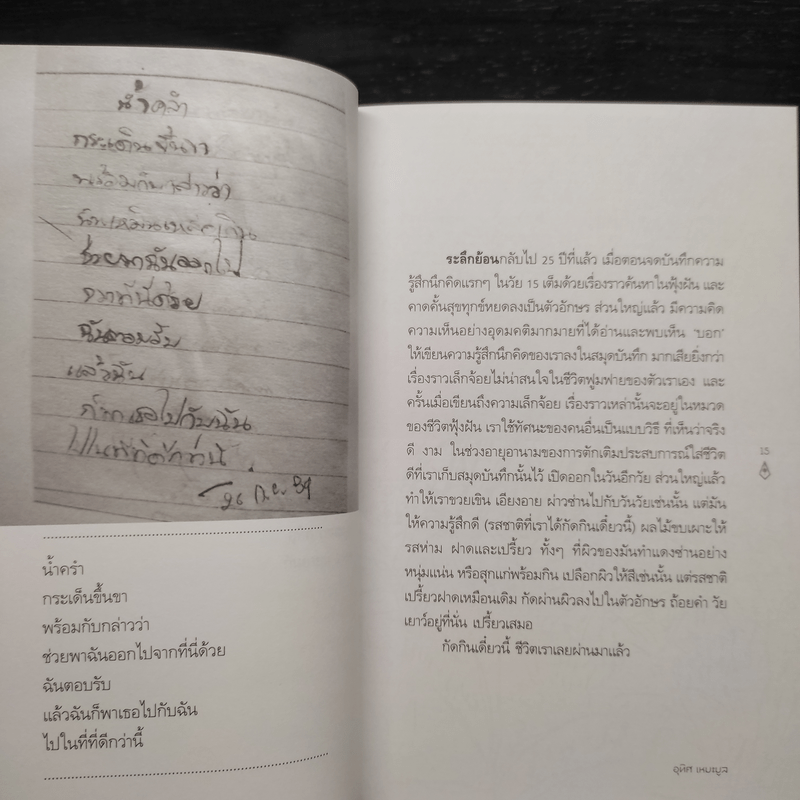 น้ำครำ
กระเด็นขึ้นขา
พร้อมกับกล่าวว่า
ช่วยพาฉันออกไป
จากที่นี่ด้วย
ฉันตอบรับ
แล้วฉัน
ก็พาเธอไปกับฉัน
ไปในที่ที่ดีกว่านี้
26 ก.ย. 39
น้ำครำ
กระเด็นขึ้นขา
พร้อมกับกล่าวว่า
ช่วยพาฉันออกไปจากที่นี่ด้วย
ฉันตอบรับ
แล้วฉันก็พาเธอไปกับฉัน
ไปในที่ที่ดีกว่านี้
ระลึกย้อนกลับไป 25 ปีที่แล้ว เมื่อตอนจดบันทึกความ
รู้สึกนึกคิดแรกๆ ในวัย 15 เต็มด้วยเรื่องราวค้นหาในฟุ้งฝัน และ
คาดคั้นสุขทุกข์หยดลงเป็นตัวอักษร ส่วนใหญ่แล้ว มีความคิด
ความเห็นอย่างอุดมคติมากมายที่ได้อ่านและพบเห็น 'บอก'
ให้เขียนความรู้สึกนึกคิดของเราลงในสมุดบันทึก มากเสียยิ่งกว่า
เรื่องราวเล็กจ้อยไม่น่าสนใจในชีวิตฟูมฟายของตัวเราเอง และ
ครั้นเมื่อเขียนถึงความเล็กจ้อย เรื่องราวเหล่านั้นจะอยู่ในหมวด
ของชีวิตฟุ้งฝัน เราใช้ทัศนะของคนอื่นเป็นแบบวิธี ที่เห็นว่าจริง
ดี งาม ในช่วงอายุอานามของการตักเติมประสบการณ์ใส่ชีวิต
ดีที่เราเก็บสมุดบันทึกนั้นไว้ เปิดออกในวันอีกวัย ส่วนใหญ่แล้ว
ทำให้เราขวยเขิน เอียงอาย ผ่าวซ่านไปกับวันวัยเช่นนั้น แต่มัน
ให้ความรู้สึกดี (รสชาติที่เราได้กัดกินเดี๋ยวนี้) ผลไม้ขบเผาะให้
รสห่าม ฝาดและเปรี้ยว ทั้งๆ ที่ผิวของมันทำแดงซ่านอย่าง
หนุ่มแน่น หรือสุกแก่พร้อมกิน เปลือกผิวให้สีเช่นนั้น แต่รสชาติ
เปรี้ยวฝาดเหมือนเดิม กัดผ่านผิวลงไปในตัวอักษร ถ้อยคำ วัย
เยาว์อยู่ที่นั่น เปรี้ยวเสมอ
กัดกินเดี๋ยวนี้ ชีวิตเราเลยผ่านมาแล้ว
15
อุทิศ เหมะมูล